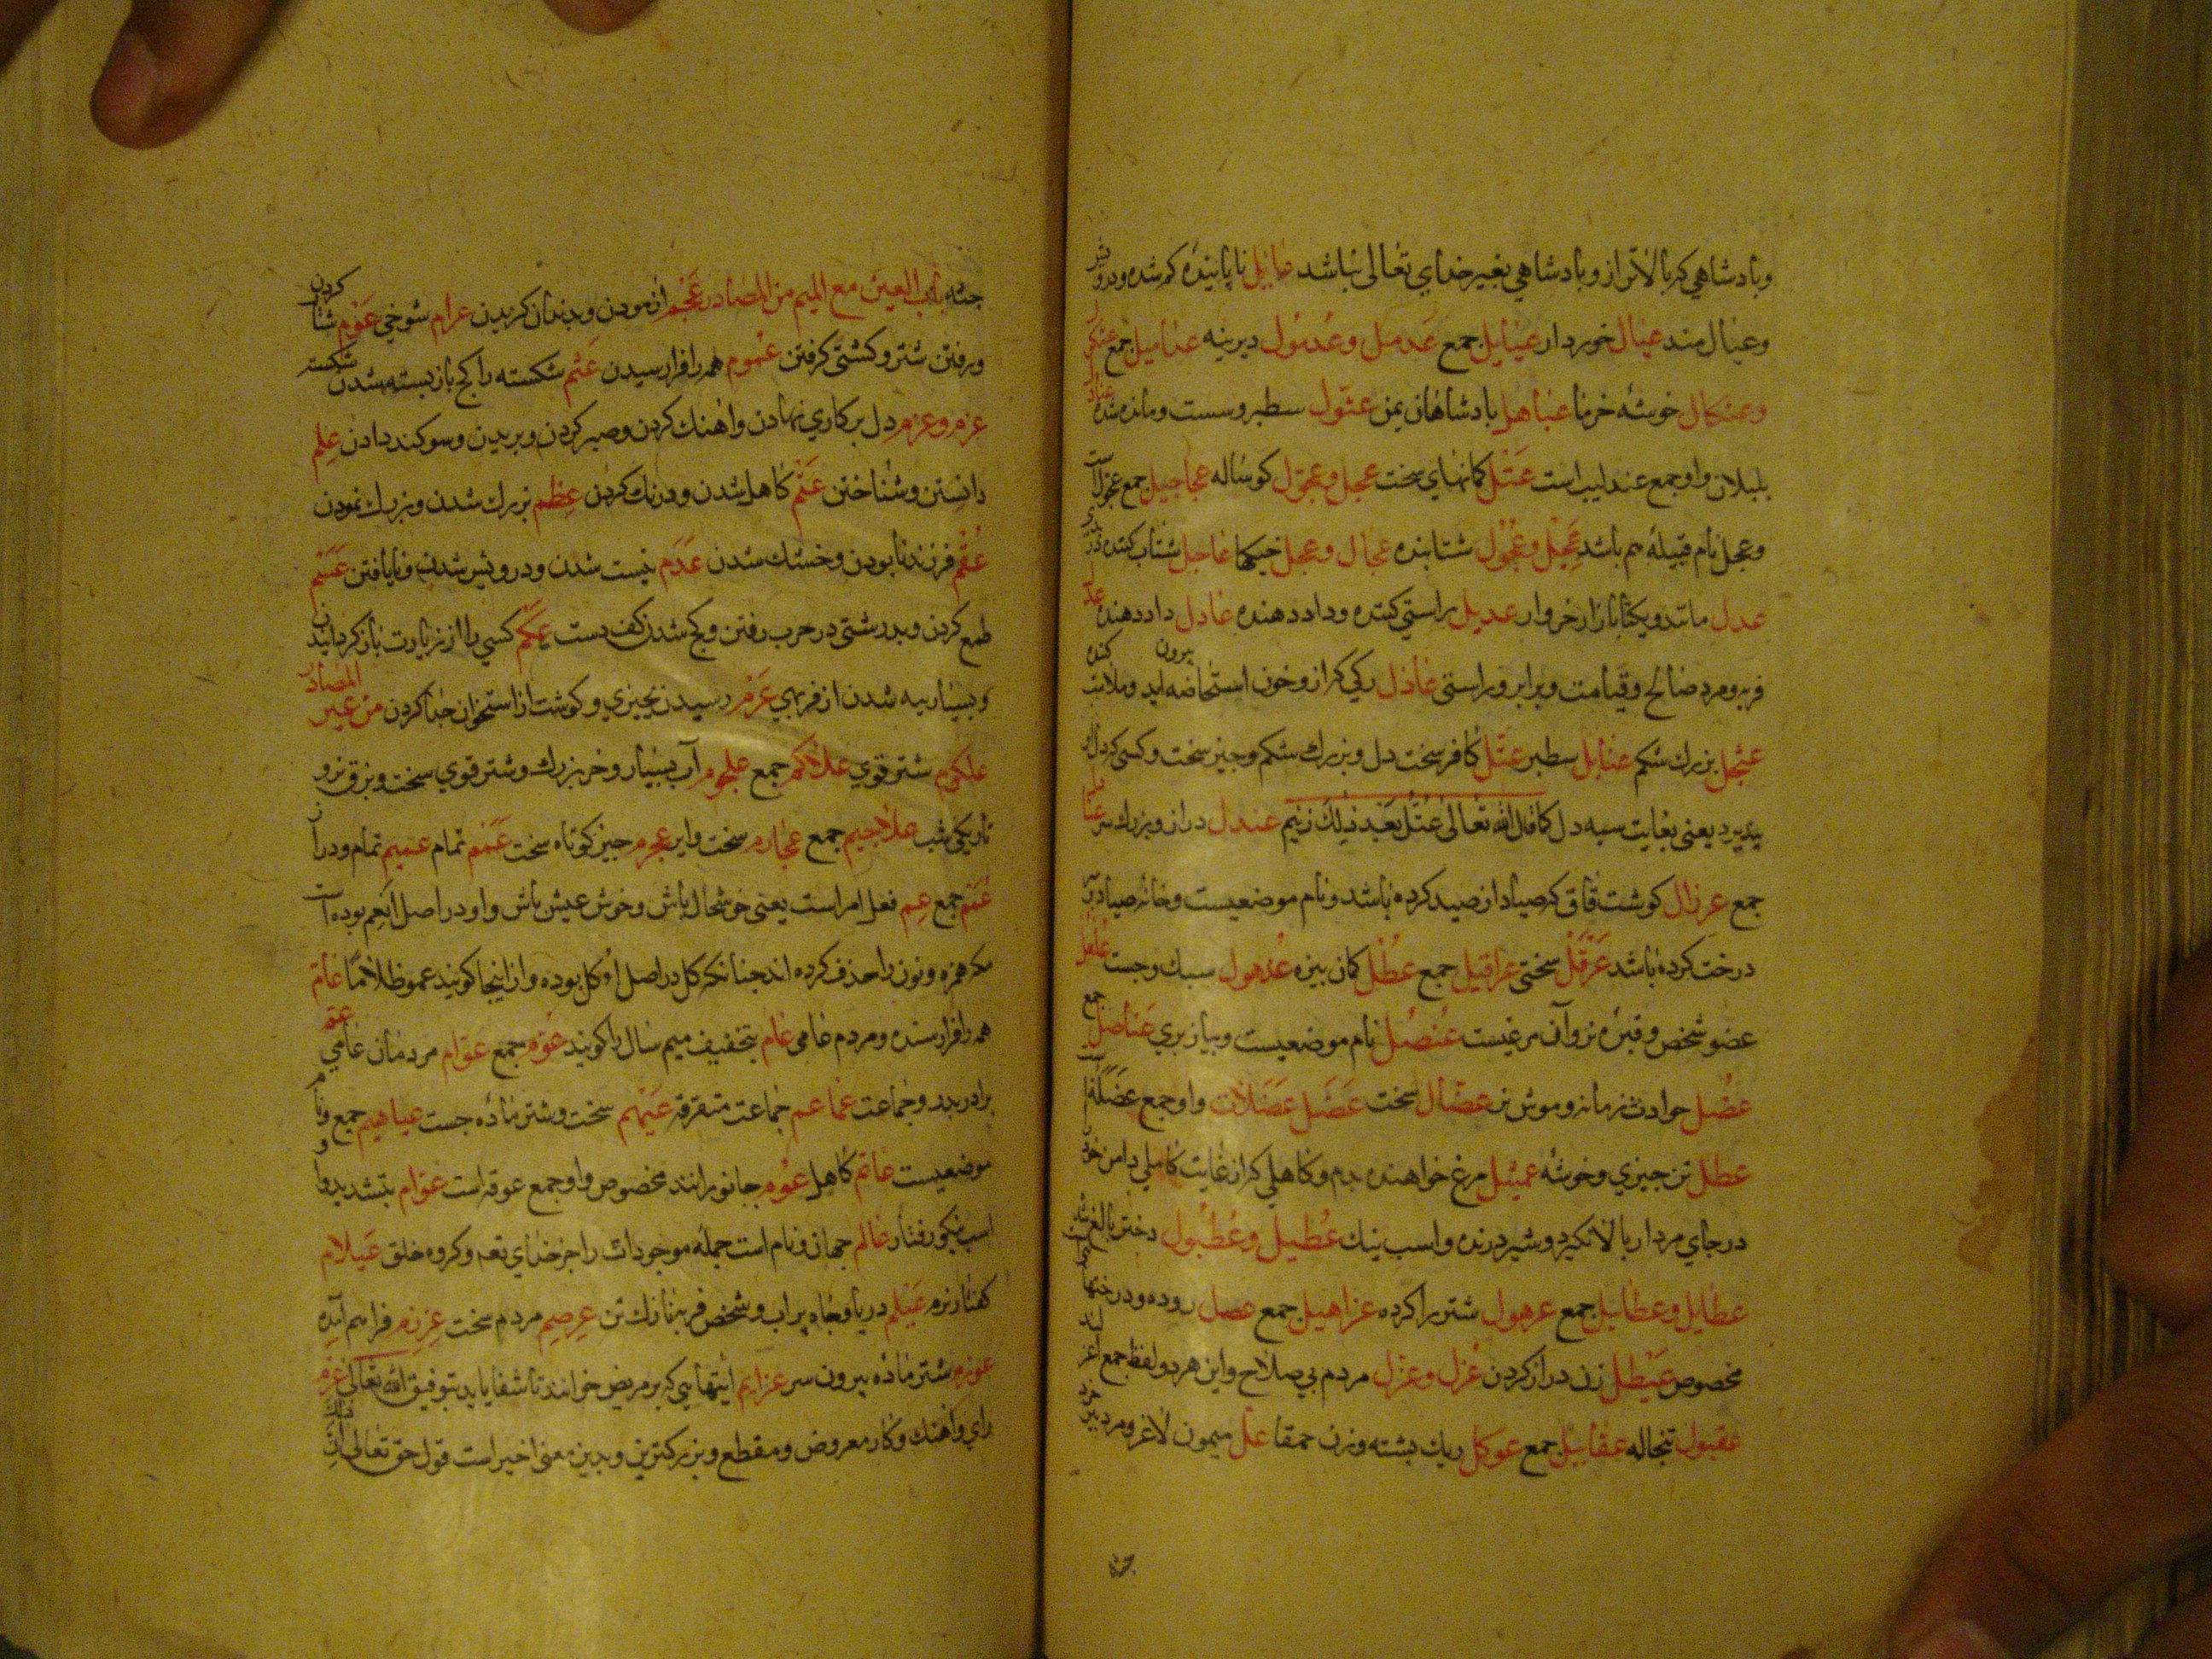 وپادشاهی که بالاتر از و پادشاهی بغیر خدای تعالی نباشد عایل ناپاینده کم شده ودرویش
وعیال مند عیال خوردار عیایل جمع عدمل وعدمول دیرینه عدامیل جمع عثکل
وعثکال خوشه خرما عباهل پادشاهان یمن عثول سطبر وسست ومانده شده عنادل
بلبلان واو جمع عندلیب است عتل کمانهای سخت عجل وعجول کوساله عجاجیل جمع عجول است
وعجل نام قبیله هم باشد عجل وعجول شتابنده عجال وعجل خیکها عاجل شتاب کننده
عدل مانند ویکتا بار از خروار عدیل براستی کننده وداد دهنده عادل داد دهنده
فربه ومرد صالح وقیامت وبرابر وراستی عاذل رکی که از و خون استحاضه اید وملامت کننده
عثجل بزرك شکم عنابل سطبر عتل کافر سخت دل وبزرك شکم وچیز سخت وکسی که دل او
پند نپذیرد یعنی بغایت سیه دل کما قال الله تعالی عتل بعد ذلك زنیم عندل دراز وبزرك سر
جمع عرزال کوشت قاق که صیاد از صید کرده باشد ونام موضعیست وخانه صیاد بر
درخت کرده باشد عرقل سختی عراقیل جمع عطل کمان بیزه عذهول سبك وجست
عضو شخص وقبزه نر وآن مرغیست عنصل نام موضعیست وپیاز بری عناصل جمع
عضل حوادث زمانه وموش نر عضال سخت عضل عضلات واو جمع عضله است
عطل تن چیزی وخوشه عمیثل مرغ خواهنده بدم وکاهلی که از غایت کاهلی دامن خود
در جای مردار بالا نکیرد وشیر درنده واسب نیك عطبل وعطبول دختر بالغ شده
عطابل وعطابیل جمع عرهول شتر رها کرده عراهیل جمع عصل روده ودرختها
مخصوص عیطل زن دراز کردن عزل وعزل مردم بی صلاح واین هر دو لفظ جمع
عقبول تبخاله عقابیل جمع عوکل ریك پشته وزن حمقا عل میمون لاغر ومرد پیر
جثه
جثه باب العین مع المیم من المصادر عجم ازمودن وبدندان کزیدن عرام شوخی عوم شنا کردن
ورفتن شتر وکشتی کرفتن عموم همه را فرا رسیدن عثم شکسته را کج باز بستن شدن شکسته
عزم وعزم دل بر کاری نهادن واهنك کردن وصبر کردن وبریدن وسوکند دادن علم
دانستن وشناختن عتم کاهل شدن ودرنك کردن عظم بزرك شدن وبزرك نمودن
عقم فرزند نابودن وخشك شدن عدم نیست شدن ودرویش شدن ونایافتن عسم
طمع کردن وبدرشتی در حرب رفتن وکج شدن کف دست عکم کسی را از زیارت باز کردانیدن
وبسیار پیه شدن از فربهی عرم رسیدن بچیزی وکوشت از استخوان جدا کردن من غیر المصادر
علکوم شتر قوی علاکم جمع علجوم آب بسیار وخر بزرك وشتر قوی سخت وبزق نر و
تاریکی شب علاجیم جمع عجارم سخت وایر عجرم چیز کوتاه سخت عمم تمام عمیم تمام ودراز
عمم جمع عم فعل امر است یعنی خوشحال باش وخوش عیش باش واو در اصل انعم بوده است
که همزه ونون را حذف کرده اند چنانکه کل در اصل اوکل بوده واز اینجا کویند عموظلاما عام
همه را فرا رسنده ومردم عامی عام بتخفیف میم سال را کویند عوم جمع عوام مردمان عامی عم
برادر پدر وجماعت عماعم جماعت متفرقه عیهم سخت وشتر ماده جست عیاهیم جمع ونام
موضعیست عاتم کاهل عومه جانور انند مخصوص واو جمع عومه است عوام بتشدید واو
اسب نیکو رفتار عالم جهان ونام است جمله موجودات را جز خدای تعه وکروه خلق عیلام
کفتار نر عیلم دریا وچاه پراب وشخص فربه نازك تن عرصم مردم سخت عرزم فراهم آمده
عوزم شتر ماده بیرون سر عزایم ایتها یی که بر مریض خوانند تا شفا یابد بتوفیق الله تعالی عزم
رای واهنك وکار معروض ومقطع وبزرکترین وبدین معنی اخیر است قول حق تعالی ان ذلك